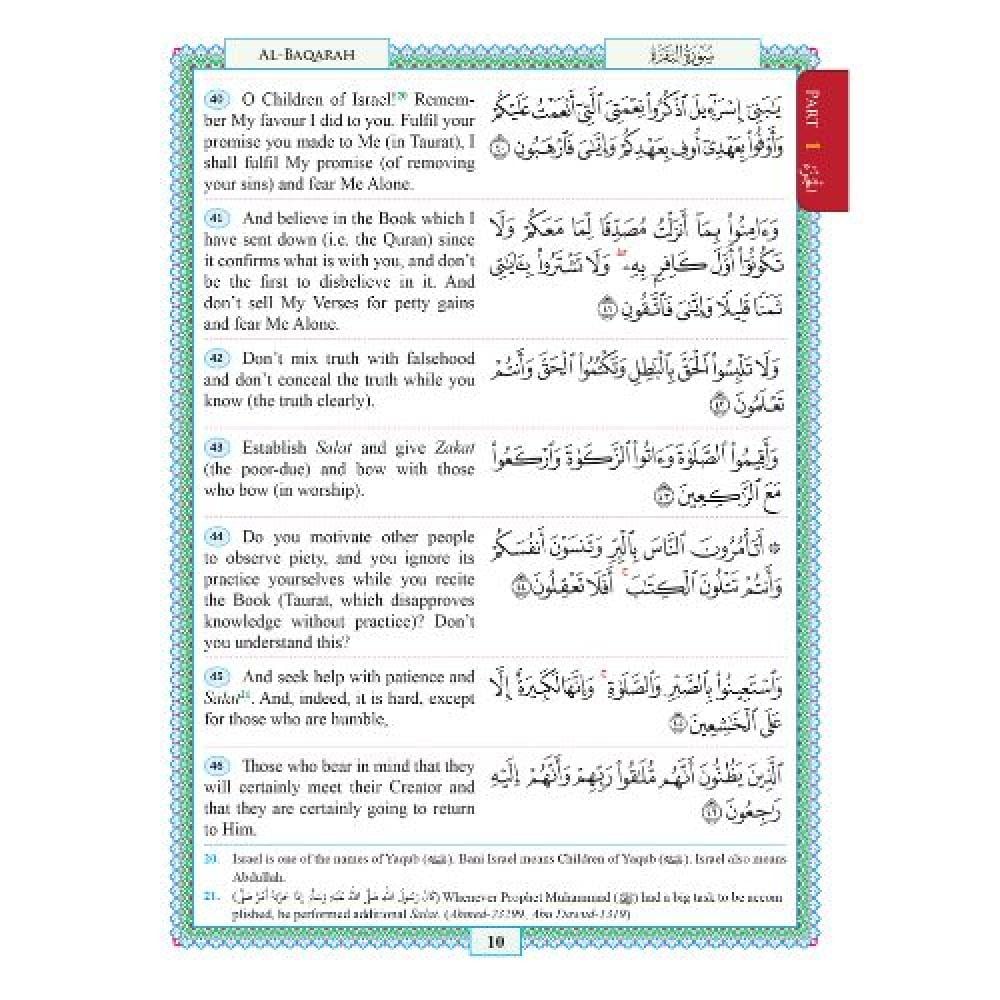 AL-BAQARAH
سُورَةُ البَقَرَة
PART 1 الجُزْءُ
40 O Children of Israel!20 Remem-
ber My favour I did to you. Fulfil your
promise you made to Me (in Taurat), I
shall fulfil My promise (of removing
your sins) and fear Me Alone.
يَـٰبَنِىٓ إِسْرَٰٓءِيلَ ٱذْكُرُوا۟ نِعْمَتِىَ ٱلَّتِىٓ أَنْعَمْتُ عَلَيْكُمْ
وَأَوْفُوا۟ بِعَهْدِىٓ أُوفِ بِعَهْدِكُمْ وَإِيَّـٰىَ فَٱرْهَبُونِ ٤٠
41 And believe in the Book which I
have sent down (i.e. the Quran) since
it confirms what is with you, and don't
be the first to disbelieve in it. And
don't sell My Verses for petty gains
and fear Me Alone.
وَءَامِنُوا۟ بِمَآ أَنزَلْتُ مُصَدِّقًا لِّمَا مَعَكُمْ وَلَا
تَكُونُوٓا۟ أَوَّلَ كَافِرٍۭ بِهِۦ ۖ وَلَا تَشْتَرُوا۟ بِـَٔايَـٰتِى
ثَمَنًا قَلِيلًا وَإِيَّـٰىَ فَٱتَّقُونِ ٤١
42 Don't mix truth with falsehood
and don't conceal the truth while you
know (the truth clearly).
وَلَا تَلْبِسُوا۟ ٱلْحَقَّ بِٱلْبَـٰطِلِ وَتَكْتُمُوا۟ ٱلْحَقَّ وَأَنتُمْ
تَعْلَمُونَ ٤٢
43 Establish Salat and give Zakat
(the poor-due) and bow with those
who bow (in worship).
وَأَقِيمُوا۟ ٱلصَّلَوٰةَ وَءَاتُوا۟ ٱلزَّكَوٰةَ وَٱرْكَعُوا۟
مَعَ ٱلرَّٰكِعِينَ ٤٣
44 Do you motivate other people
to observe piety, and you ignore its
practice yourselves while you recite
the Book (Taurat, which disapproves
knowledge without practice)? Don't
you understand this?
۞ أَتَأْمُرُونَ ٱلنَّاسَ بِٱلْبِرِّ وَتَنسَوْنَ أَنفُسَكُمْ
وَأَنتُمْ تَتْلُونَ ٱلْكِتَـٰبَ ۚ أَفَلَا تَعْقِلُونَ ٤٤
45 And seek help with patience and
Salat21. And, indeed, it is hard, except
for those who are humble,
وَٱسْتَعِينُوا۟ بِٱلصَّبْرِ وَٱلصَّلَوٰةِ ۚ وَإِنَّهَا لَكَبِيرَةٌ إِلَّا
عَلَى ٱلْخَـٰشِعِينَ ٤٥
46 Those who bear in mind that they
will certainly meet their Creator and
that they are certainly going to return
to Him.
ٱلَّذِينَ يَظُنُّونَ أَنَّهُم مُّلَـٰقُوا۟ رَبِّهِمْ وَأَنَّهُمْ إِلَيْهِ
رَٰجِعُونَ ٤٦
20. Israel is one of the names of Yaqub. Bani Israel means Children of Yaqub. Israel also means
Abdullah.
21. (كَانَ رَسُولُ اللهِ صَلَّى اللهُ عَلَيْهِ وَسَلَّمَ إِذَا حَزَبَهُ أَمْرٌ صَلَّى) Whenever Prophet Muhammad (ﷺ) had a big task to be accom
plished, he performed additional Salat. (Ahmed-23299, Abu Dawud-1319)
10